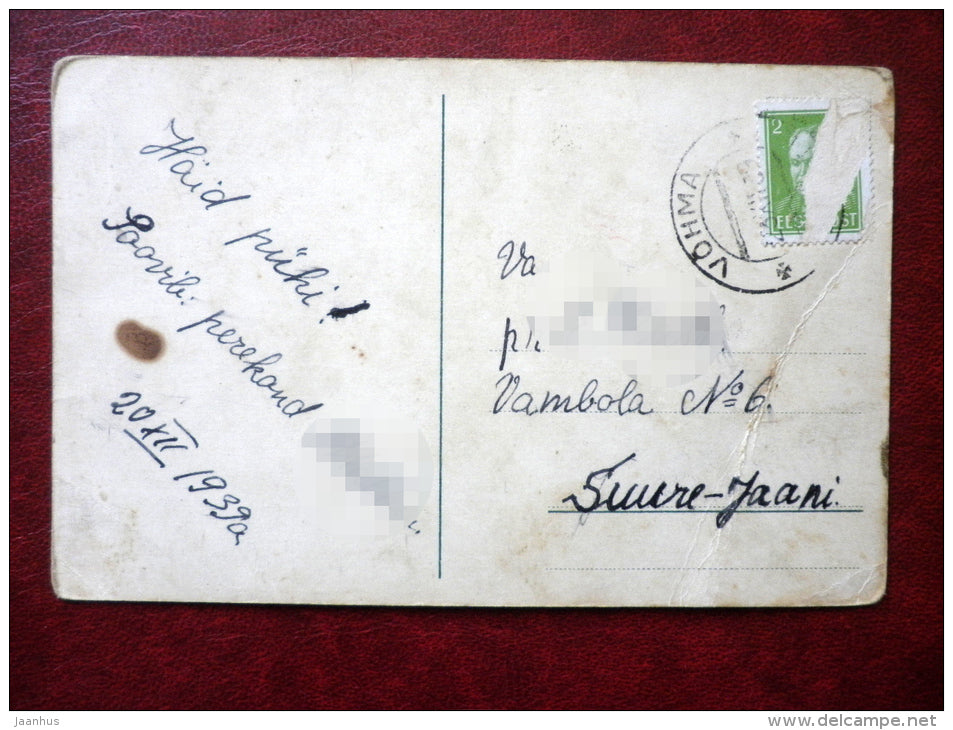 Häid pühi!
Soovib. perekond
20 XII 1939a
2
VÕHMA
Va
Vambola № 6.
Suure-Jaani.
jaanhus
www.delcampe.net